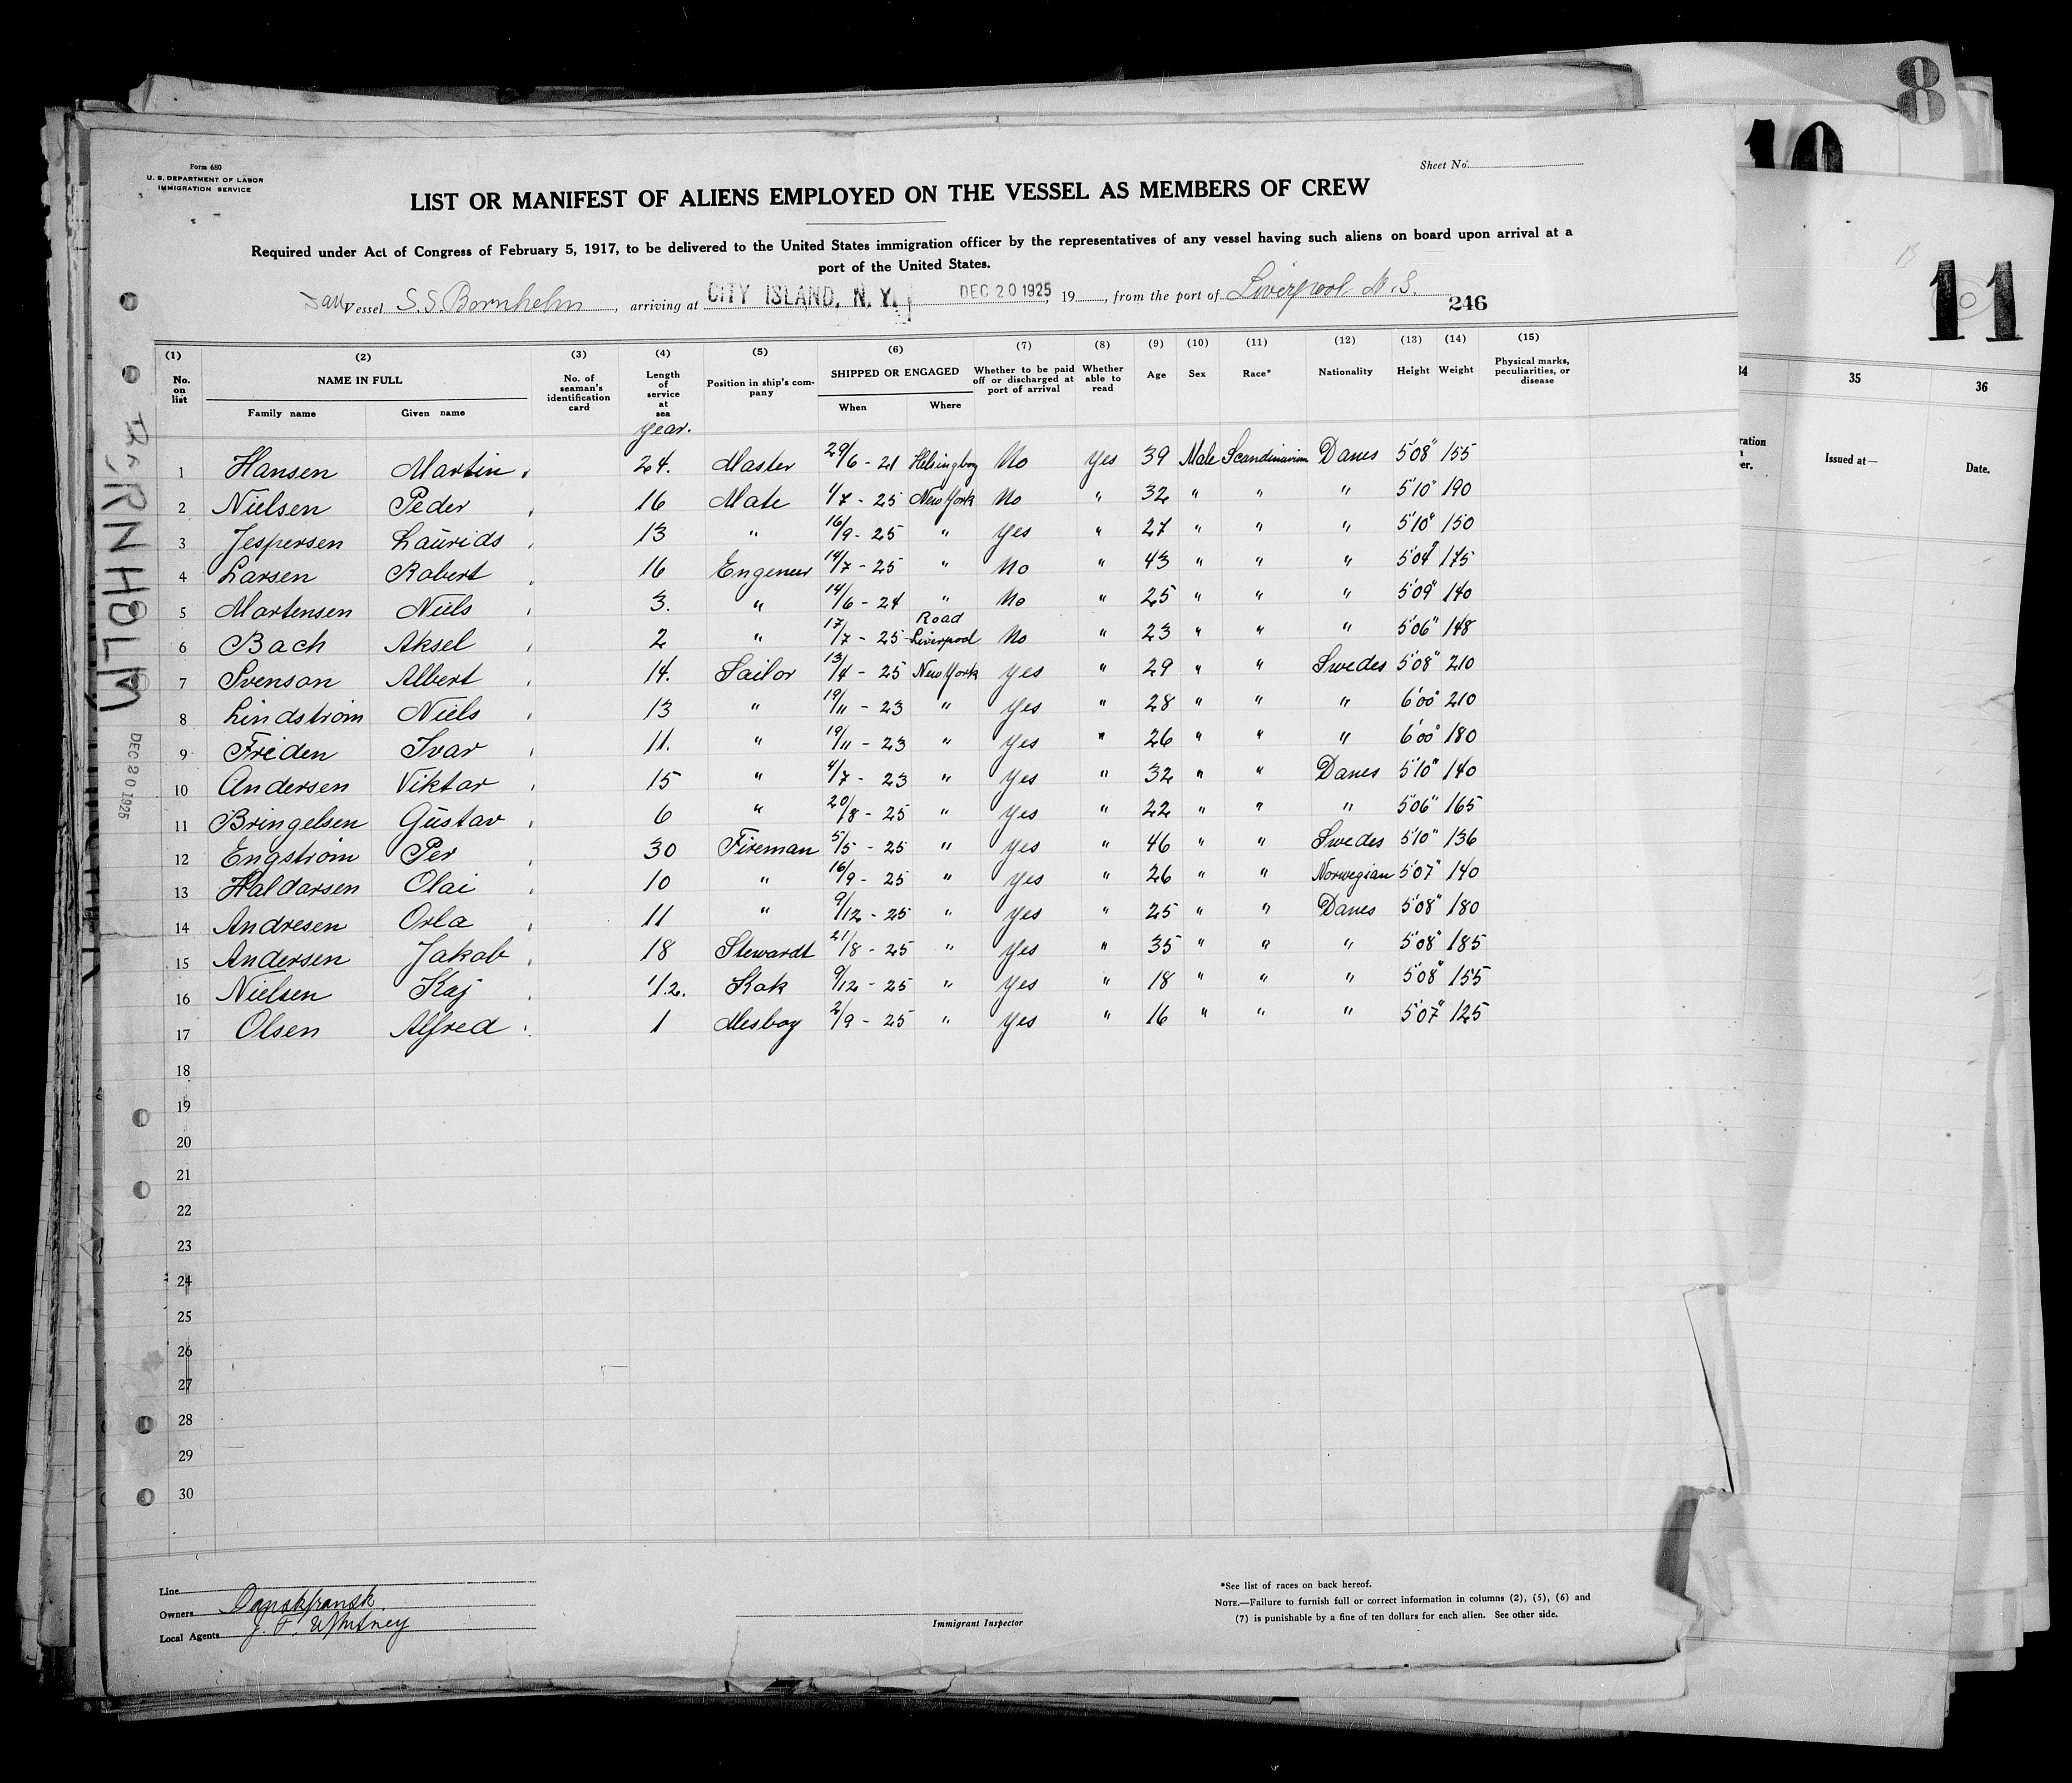 8
10
11
Form 680
U. S. DEPARTMENT OF LABOR
IMMIGRATION SERVICE
Sheet No.
LIST OR MANIFEST OF ALIENS EMPLOYED ON THE VESSEL AS MEMBERS OF CREW
Required under Act of Congress of February 5, 1917, to be delivered to the United States immigration officer by the representatives of any vessel having such aliens on board upon arrival at a
port of the United States.
Dan Vessel S.S. Bornholm, arriving at CITY ISLAND, N. Y. DEC 20 1925, 19, from the port of Liverpool N.S.
246
(1) (2) (3) (4) (5) (6) (7) (8) (9) (10) (11) (12) (13) (14) (15)
No. on list NAME IN FULL Family name Given name No. of seaman's identification card Length of service at sea year. Position in ship's company SHIPPED OR ENGAGED When Where Whether to be paid off or discharged at port of arrival Whether able to read Age Sex Race* Nationality Height Weight Physical marks, peculiarities, or disease
1 Hansen Martin 24. Master 29/6 - 21 Helsingborg No Yes 39 Male Scandinavian Danes 5'08" 155
2 Nielsen Peder 16 Mate 1/7 - 25 New York No " 32 " " " 5'10" 190
3 Jespersen Laurids 13 " 16/9 - 25 " Yes " 27 " " " 5'10" 150
4 Larsen Robert 16 Engeneur 14/7 - 25 " No " 43 " " " 5'04" 175
5 Martensen Niels 3. " 14/6 - 24 " No " 25 " " " 5'09" 140
6 Bach Aksel 2 " 17/7 - 25 Road Liverpool No " 23 " " " 5'06" 148
7 Svenson Albert 14. Sailor 13/4 - 25 New York Yes " 29 " " Swedes 5'08" 210
8 Lindstrom Niels 13 " 19/11 - 23 " Yes " 28 " " " 6'00" 210
9 Friden Ivar 11. " 19/11 - 23 " Yes " 26 " " " 6'00" 180
10 Andersen Viktor 15 " 4/7 - 23 " Yes " 32 " " Danes 5'10" 140
11 Bringelsen Gustav 6 " 20/8 - 25 " Yes " 22 " " " 5'06" 165
12 Engstrom Per 30 Fireman 5/5 - 25 " Yes " 46 " " Swedes 5'10" 136
13 Haldorsen Olai 10 " 16/9 - 25 " Yes " 26 " " Norwegian 5'07" 140
14 Andresen Orla 11 " 9/12 - 25 " Yes " 25 " " Danes 5'08" 180
15 Andersen Jakob 18 Stewardt 21/8 - 25 " Yes " 35 " " " 5'08" 185
16 Nielsen Kaj 1/2. Kok 9/12 - 25 " Yes " 18 " " " 5'08" 155
17 Olsen Alfred 1 Mesboy 2/9 - 25 " Yes " 16 " " " 5'07" 125
18
19
20
21
22
23
24
25
26
27
28
29
30
BORNHOLM
DEC 20 1925
Line
Owners Danskfransk.
Local Agents J. F. Whitney
Immigrant Inspector
*See list of races on back hereof.
NOTE.—Failure to furnish full or correct information in columns (2), (5), (6) and
(7) is punishable by a fine of ten dollars for each alien. See other side.
34 35 36
Issued at—
Date.